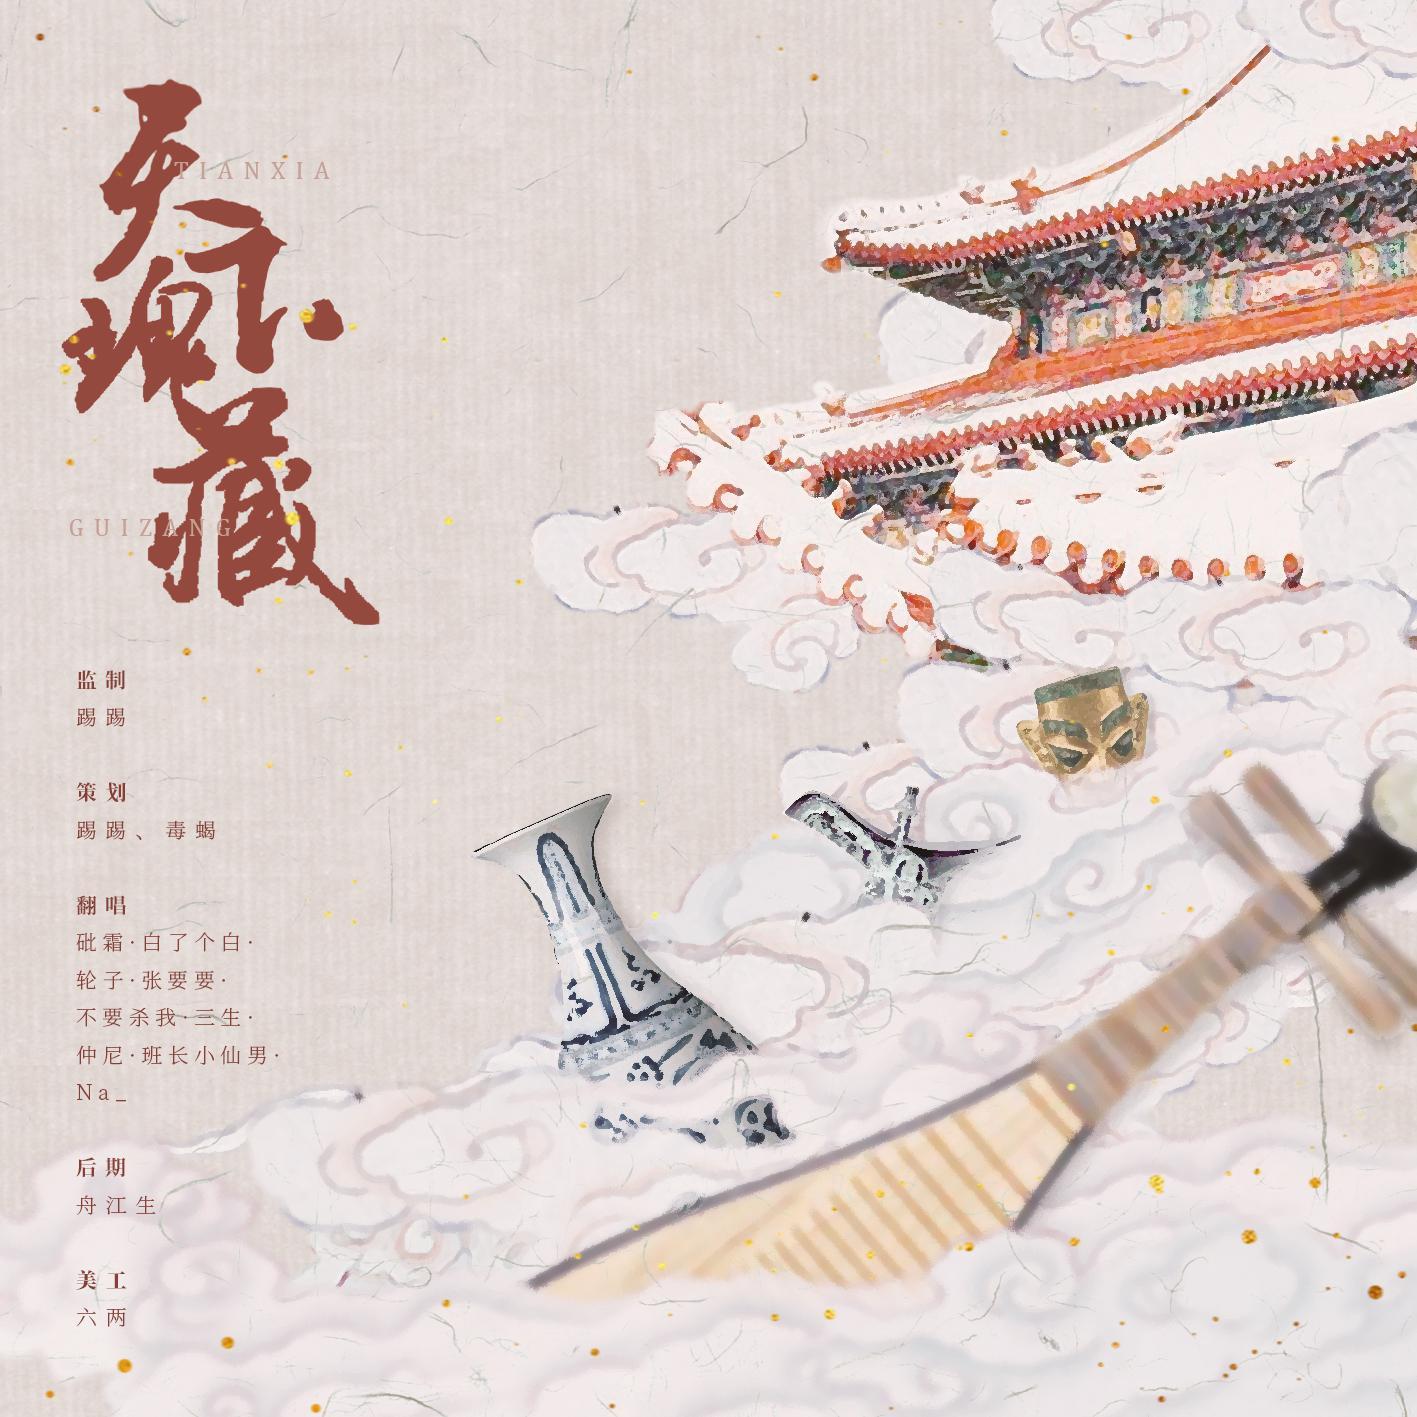 天下瑰藏
TIANXIA
GUIZANG
监制
踢踢
策划
踢踢、毒蝎
翻唱
砒霜·白了个白·
轮子·张要要·
不要杀我·三生·
仲尼·班长小仙男·
Na_
后期
舟江生
美工
六两